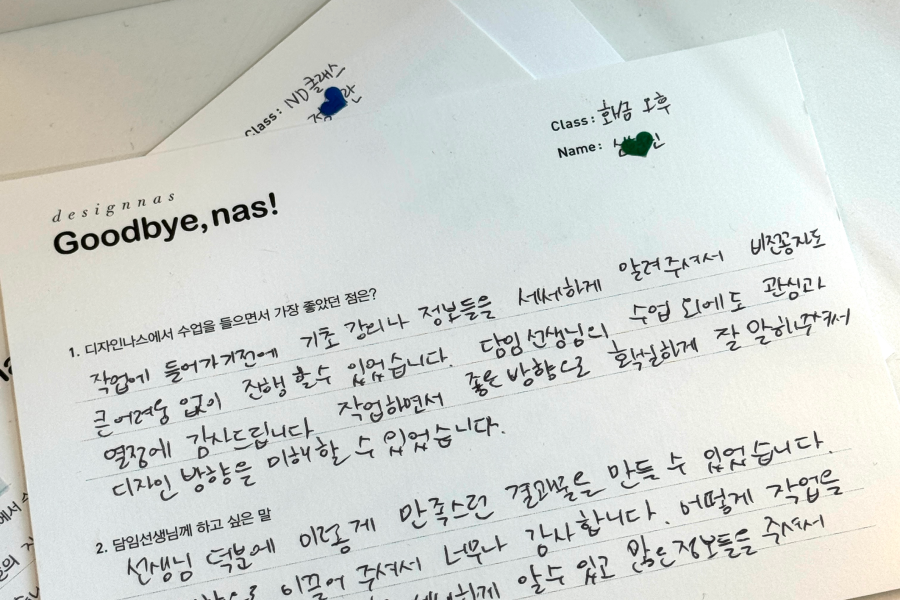 Class: ND클래스
란
Class: 화금 오후
Name:
designnas
Goodbye, nas!
1. 디자인나스에서 수업을 들으면서 가장 좋았던 점은?
작업에 들어가기전에 기초 강의나 정보들을 세세하게 알려주셔서 비전공자도
큰 어려움 없이 진행 할 수 있었습니다. 담임 선생님의 수업 외에도 관심과
열정에 감사드립니다 작업하면서 좋은 방향으로 확실하게 잘 말해주셔서
디자인 방향을 이해할 수 있었습니다.
2. 담임선생님께 하고 싶은 말
선생님 덕분에 이렇게 만족스런 결과물을 만들 수 있었습니다.
이끌어 주셔서 너무나 감사합니다. 어떻게 작업을
알 수 있고 많은 정보들을 주셔서